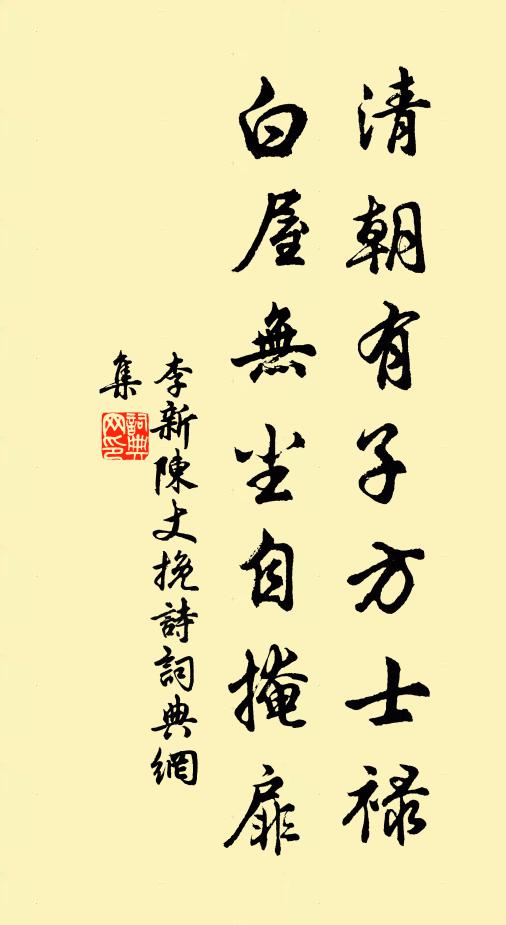 清朝有子方士禄
白屋無尘自掩扉
李新陳丈挽詩詞典網
集
詞典
网印